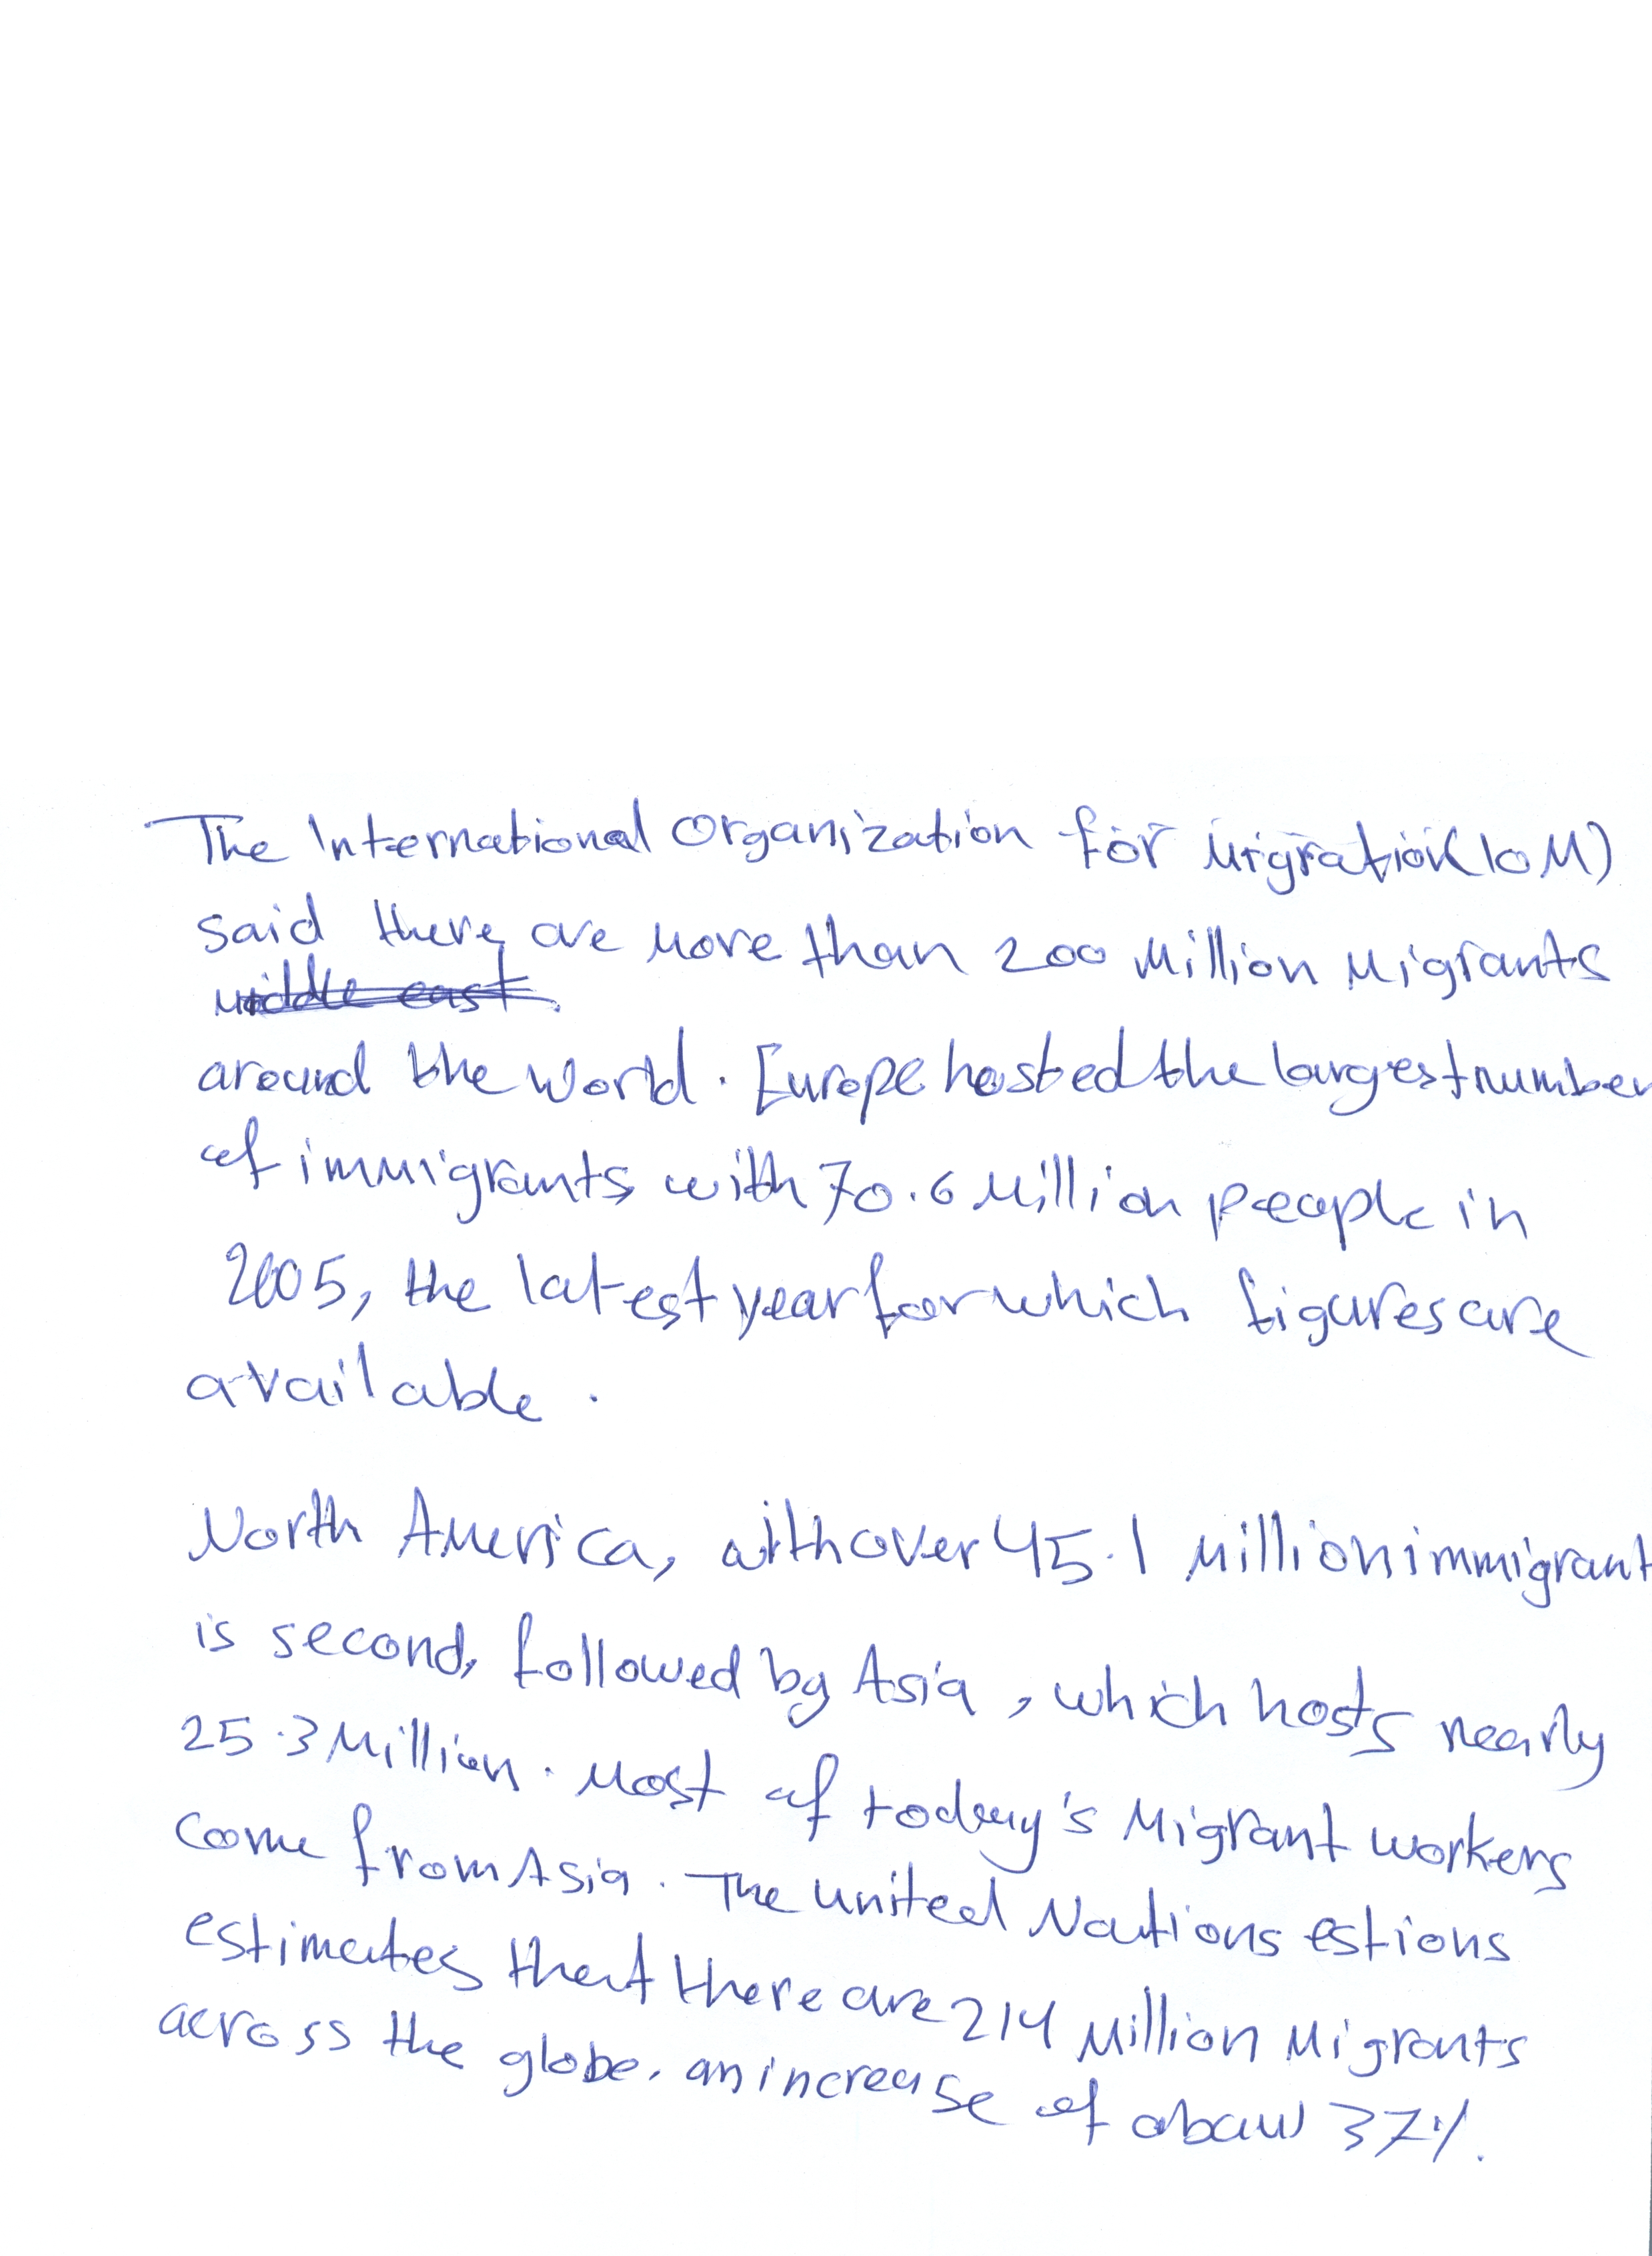 The International Organization for Migration (IOM)
said there are more than 200 Million Migrants
middle east
around the world. Europe hosted the largest number
of immigrants with 70.6 Million people in
2005, the latest year for which figures are
available.
North America, with over 45.1 Million immigrant
is second, followed by Asia, which hosts nearly
25.3 Million. Most of today's Migrant workers
come from Asia. The United Nations estions
estimates that there are 214 Million Migrants
across the globe, an increase of about 37%.